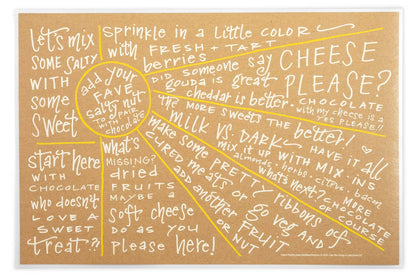 let's mix
SOME SALTY
WITH
some
Sweet
sprinkle in a little color
with FRESH + TART
berries
add your
FAVE
salty nut
TO TOP OFF
WITH
chocolate
DID someone say CHEESE
PLEASE?
gouda is great
cheddar is better.
CHOCOLATE
with my cheese is a
YES PLEASE!!
the MORE SWEETS THE better!
milk VS. DARK HAVE it all
mix it up WITH MIX-INS
almonds + herbs + citrus + bacon
what's next? MORE
CHOCOLATE
OF COURSE
make some PRETTY ribbons of
CURED meats or go VEG AND
ADD another FRUIT
OR NUT
what's
MISSING?
dried
FRUITS
MAYBE a
soft cheese
DO AS YOU
please here!
start here
WITH
CHOCOLATE
who doesn't
LOVE A
SWEET
treat??!